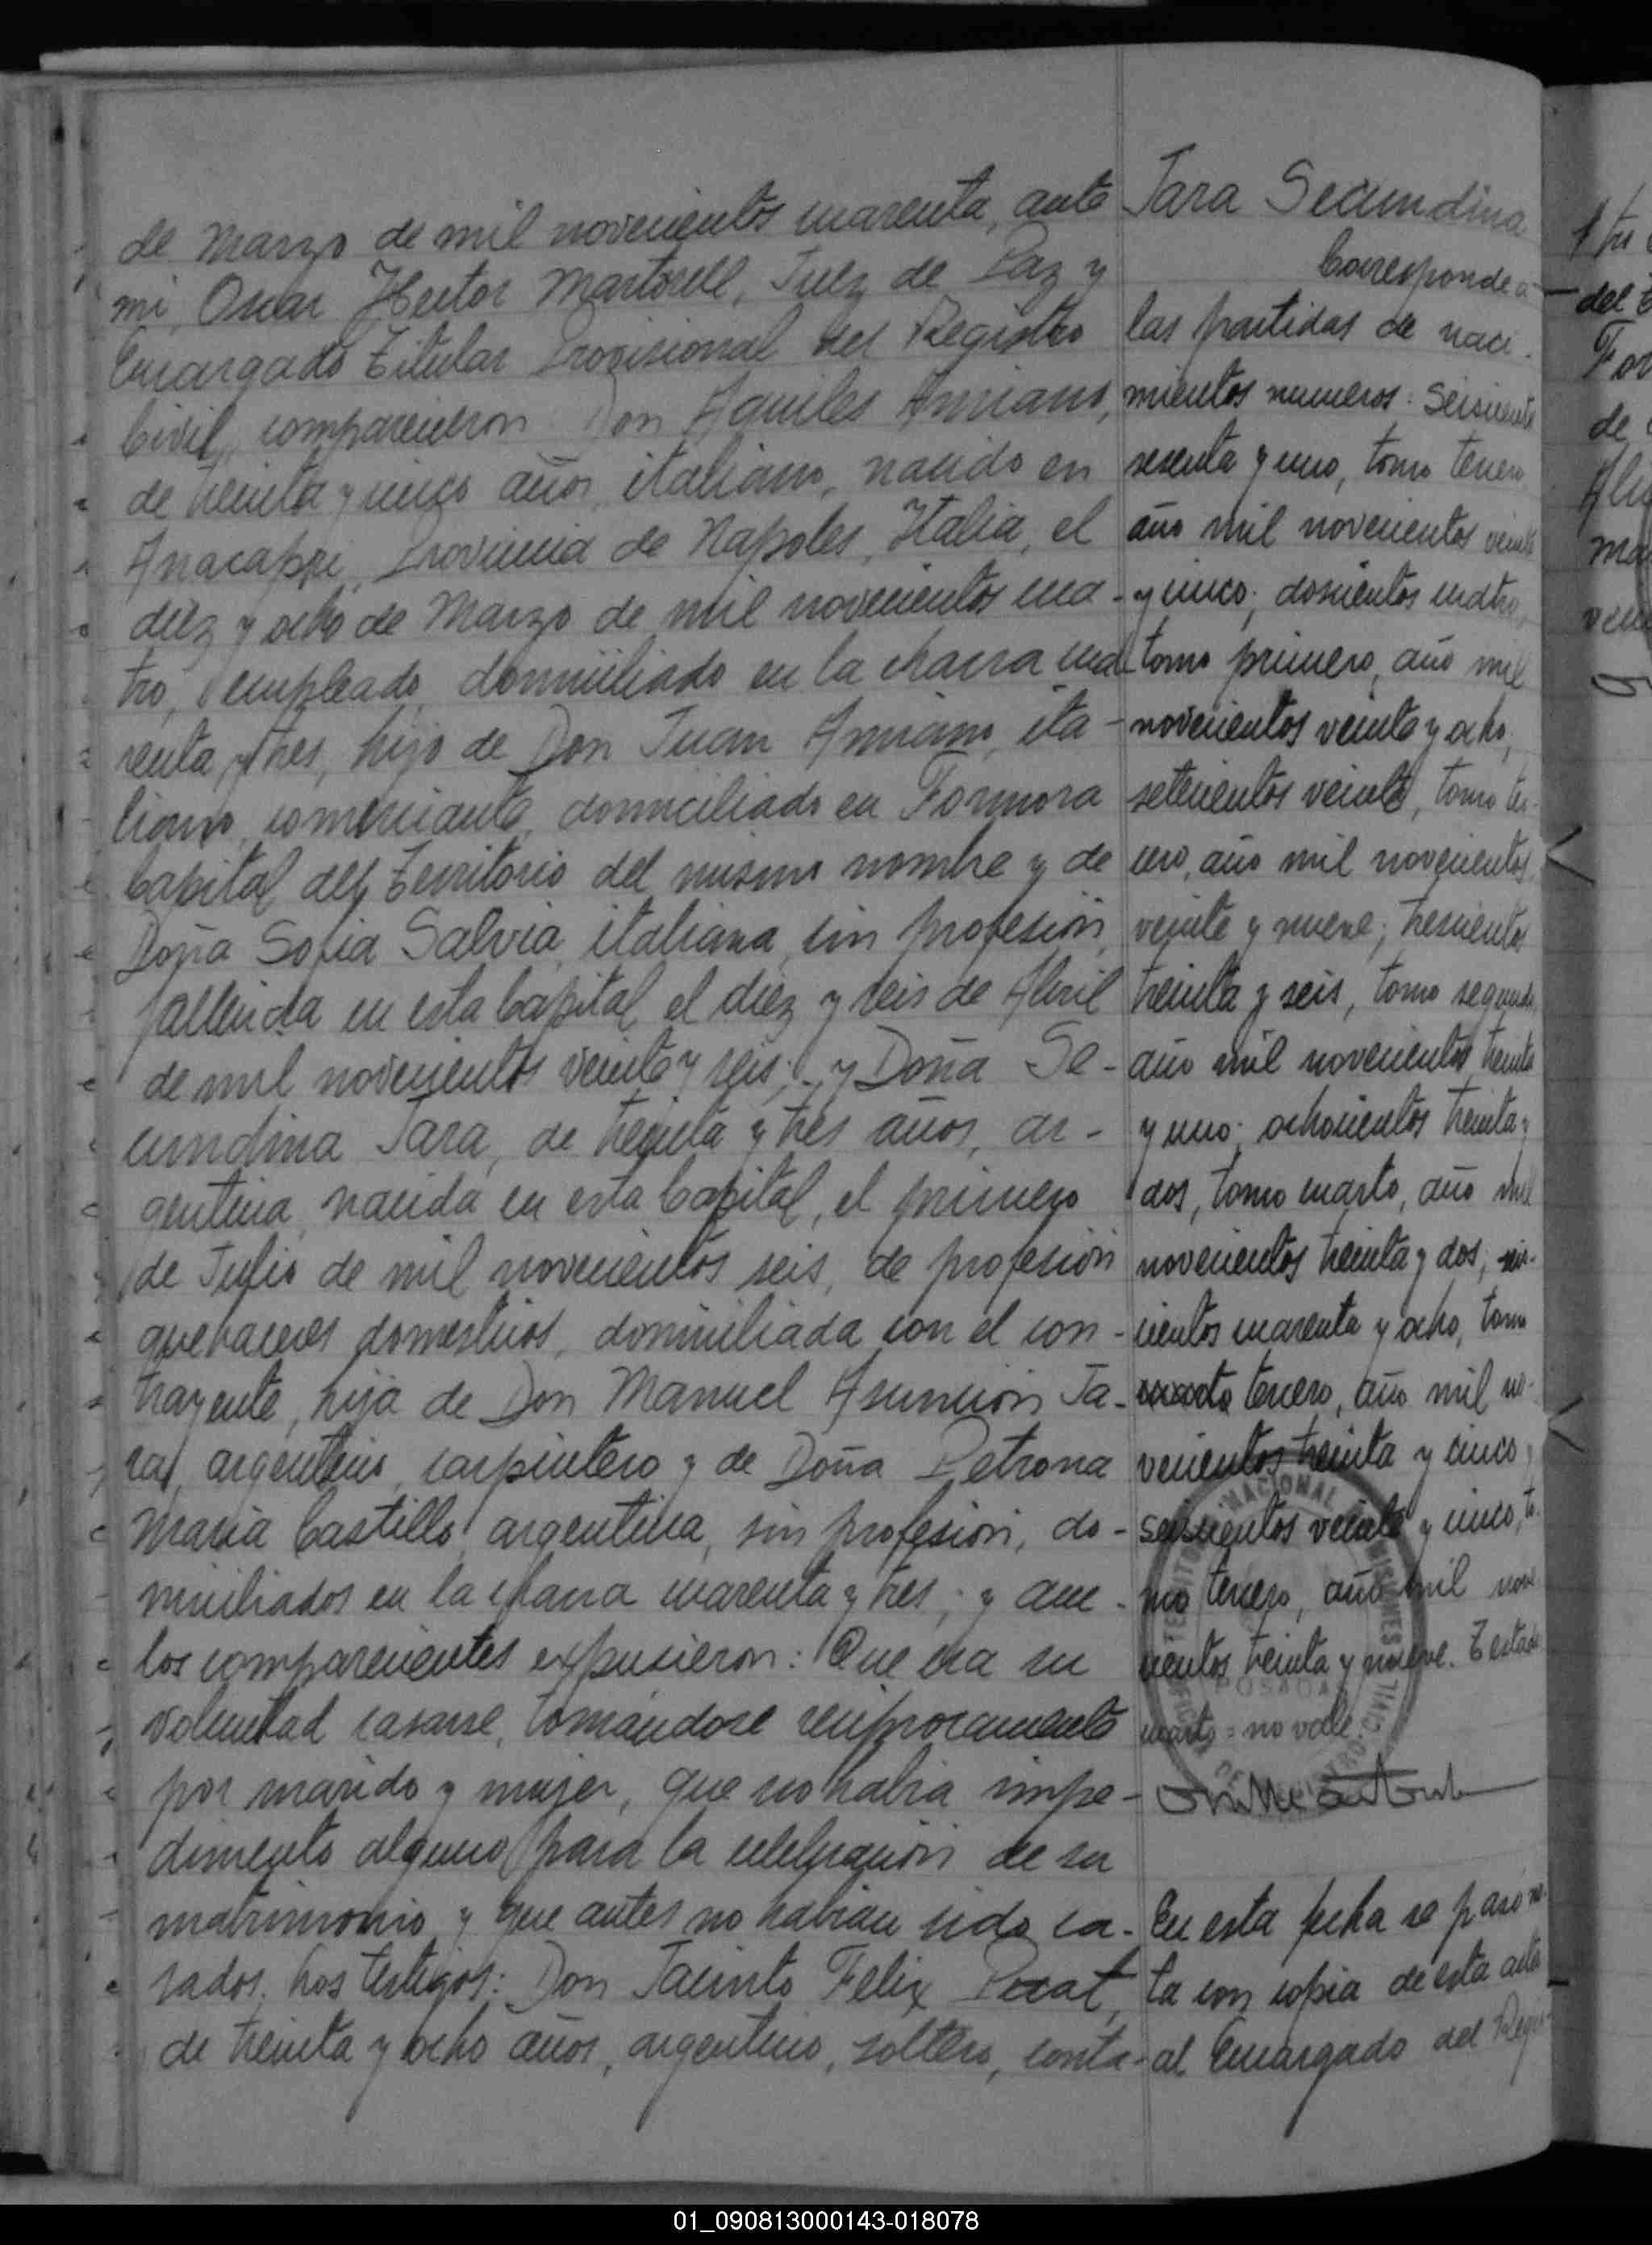 de Marzo de mil novecientos cuarenta, ante
mi, Oscar Hector Martorell, Juez de Paz y
Encargado Titular Provisional del Registro
Civil, comparecieron Don Aquiles Arriano,
de treinta y cinco años, italiano, nacido en
Anacapri, Provincia de Napoles, Italia, el
diez y ocho de Marzo de mil novecientos cua-
tro, empleado, domiciliado en la chacra cua-
renta y tres, hijo de Don Juan Arriano, ita-
liano, comerciante, domiciliado en Formosa
Capital del Territorio del mismo nombre y de
Doña Sofia Salvia, italiana, sin profesión,
fallecida en esta Capital el diez y seis de Abril
de mil novecientos veinte y seis; y Doña Se-
cundina Jara, de treinta y tres años, ar-
gentina, nacida en esta Capital, el primero
de Julio de mil novecientos seis, de profesión
quehaceres domesticos, domiciliada con el con-
trayente, hija de Don Manuel Asunción Ja-
ra, argentino, carpintero y de Doña Petrona
Maria Castillo, argentina, sin profesión, do-
miciliados en la chacra cuarenta y tres; y
los comparecientes expusieron: Que era su
voluntad casarse, tomándose reciprocamente
por marido y mujer, que no habia impe-
dimento alguno para la celebración de su
matrimonio y que antes no habian sido ca-
sados. Los testigos: Don Jacinto Felix
de treinta y ocho años, argentino, soltero, conta-
Jara Secundina
Corresponde a
las partidas de naci-
mientos numeros: Seiscientos
sesenta y uno, tomo tercero
año mil novecientos veinte
y cinco; doscientos cuatro,
tomo primero, año mil
novecientos veinte y ocho;
setecientos veinte, tomo ter-
cero, año mil novecientos
veinte y nueve; trescientos
treinta y seis, tomo segundo,
año mil novecientos treinta
y uno; ochocientos treinta y
dos, tomo cuarto, año mil
novecientos treinta y dos; seis-
cientos cuarenta y ocho, tomo
cuarto tercero, año mil no-
vecientos treinta y cinco;
seiscientos veinte y cinco, to-
mo tercero, año mil nove
cientos treinta y nueve. Testado
cuarto = no vale.
En esta fecha se pasó no-
ta con copia de esta acta
al Encargado del Regis-
NACIONAL DE MISIONES
POSADAS
REGISTRO CIVIL
del
de
01_090813000143-018078